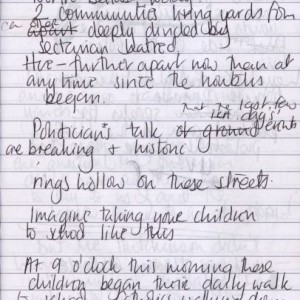 2 communities living yards from
ca each
apart deeply divided by
sectarian hatred.
Here - further apart now than at
any time since the troubles
began.
the last few
ten days
Politician's talk of ground events
are breaking + historic
rings hollow on these streets.
Imagine taking your children
to school like this
At 9 o'clock this morning these
children began their daily walk
to school